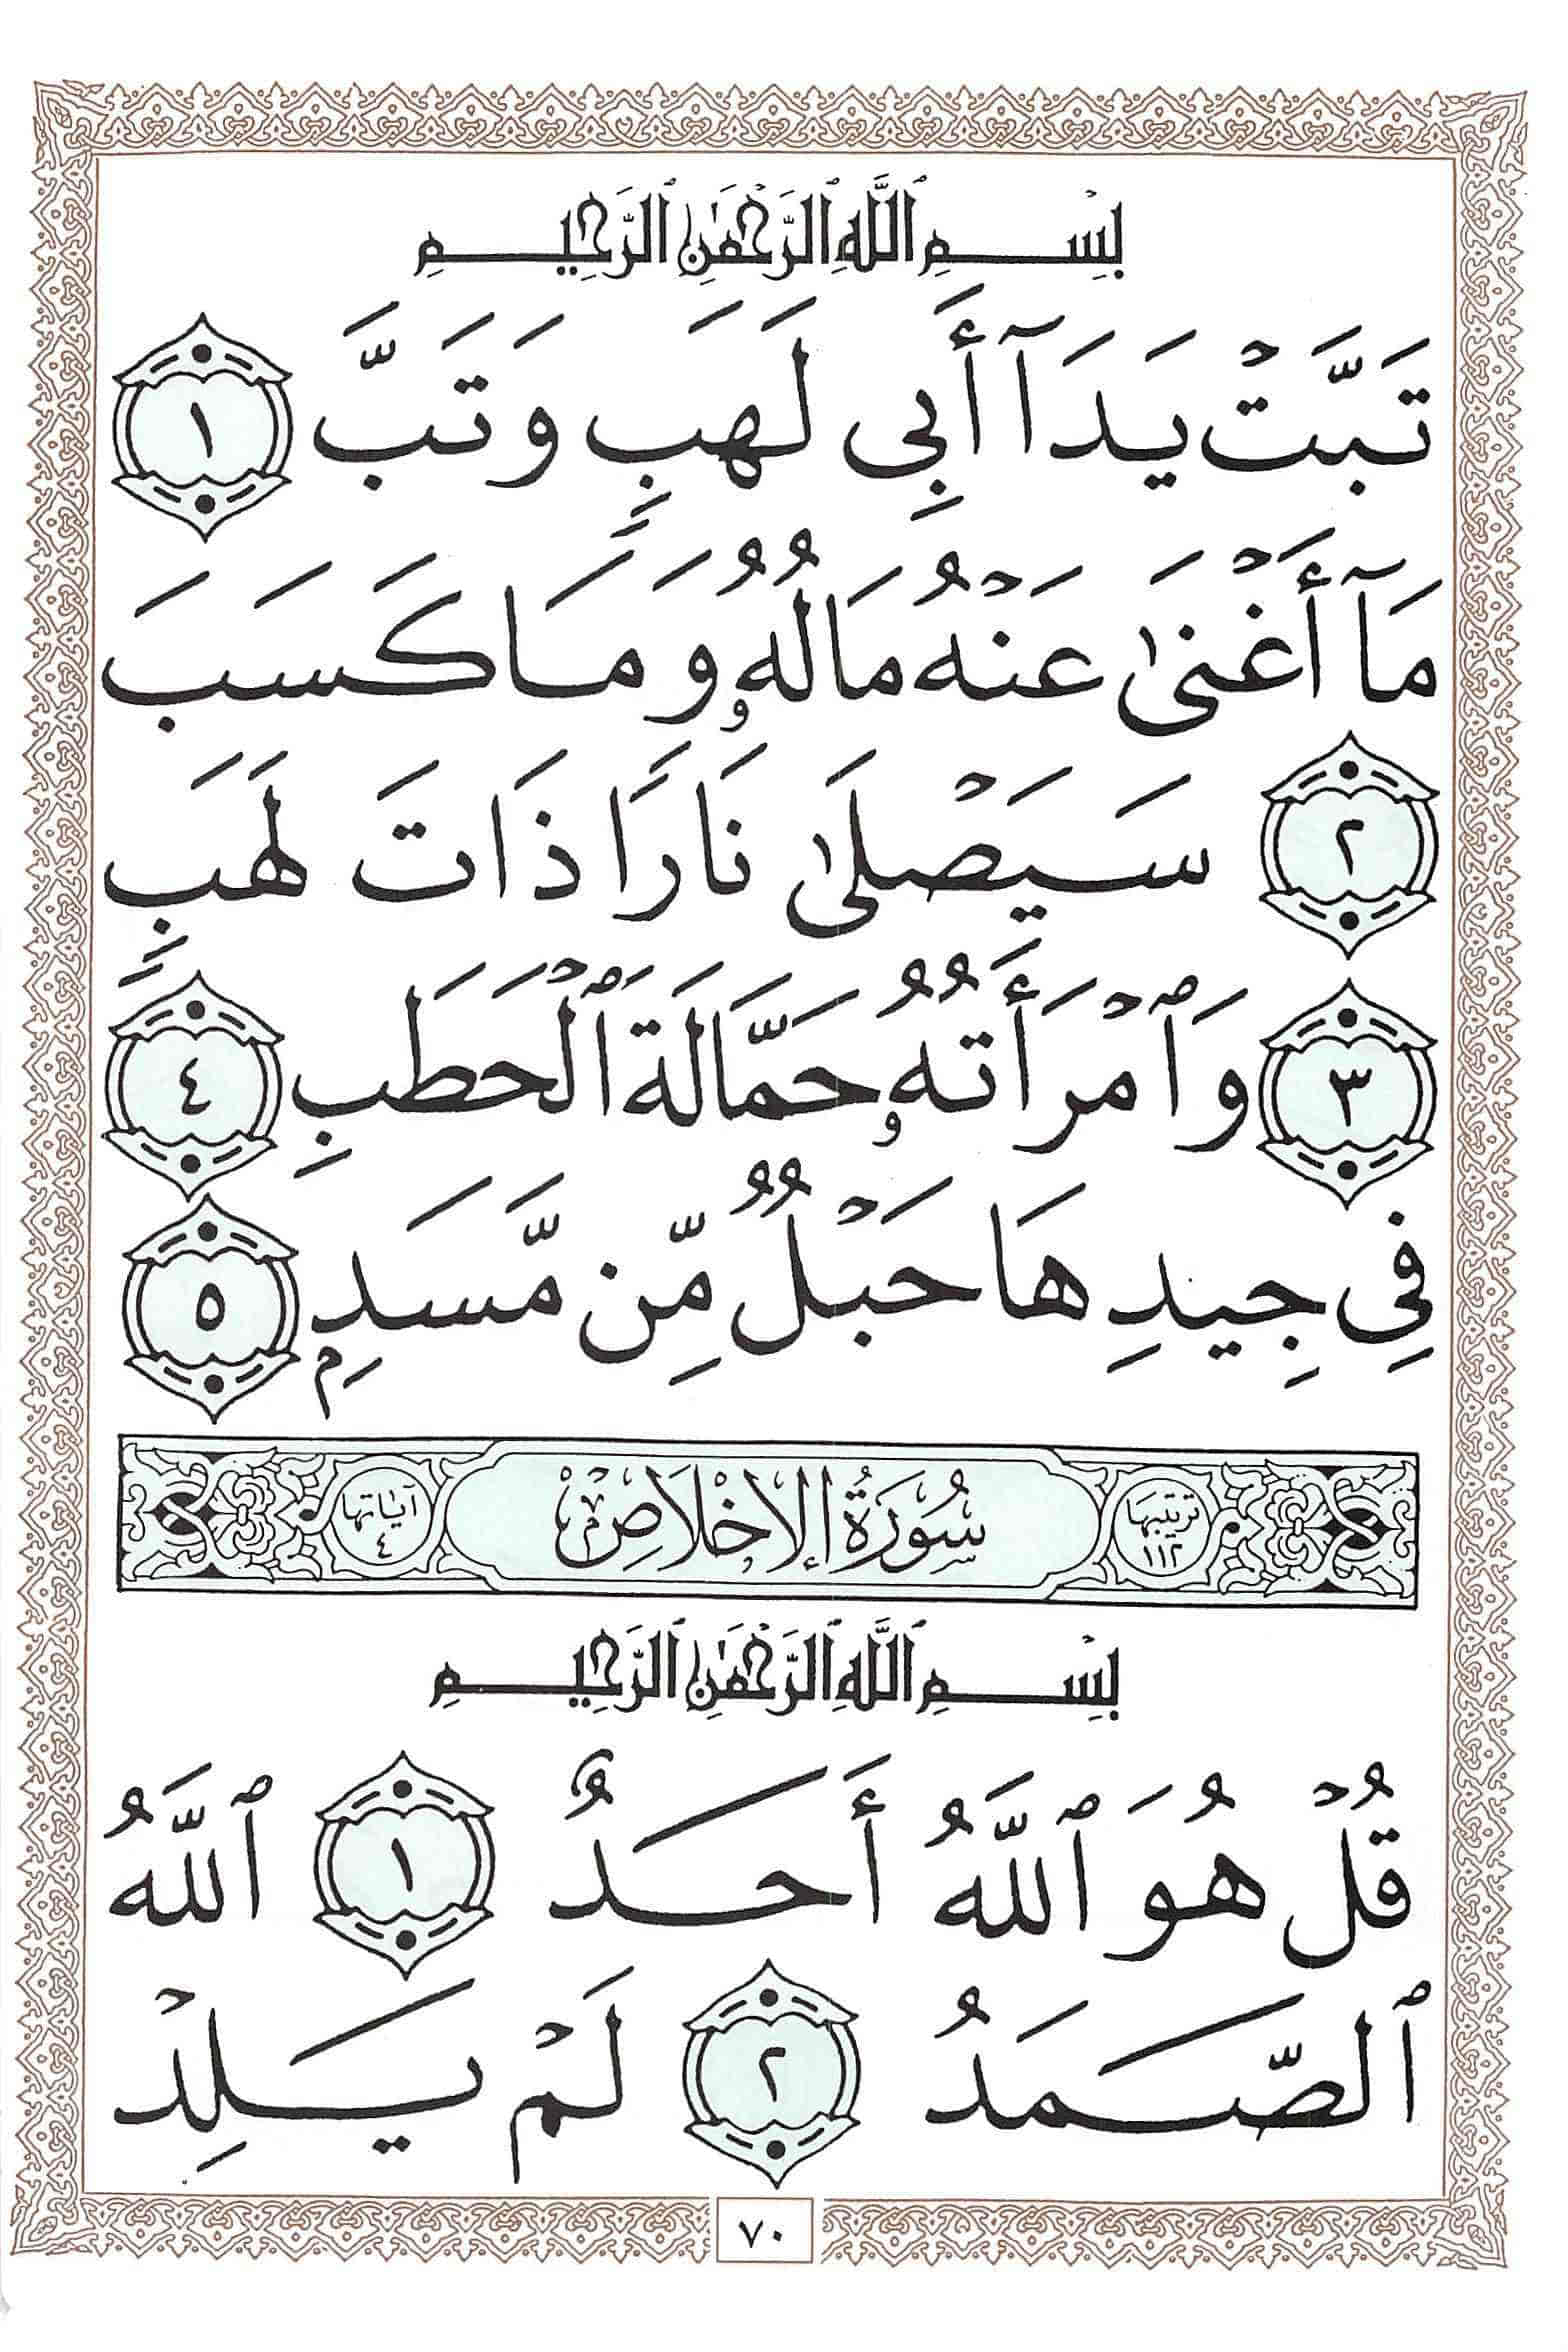 بِسْمِ ٱللَّهِ ٱلرَّحْمَٰنِ ٱلرَّحِيمِ
تَبَّتْ يَدَآ أَبِى لَهَبٍ وَتَبَّ ١
مَآ أَغْنَىٰ عَنْهُ مَالُهُۥ وَمَا كَسَبَ
٢ سَيَصْلَىٰ نَارًا ذَاتَ لَهَبٍ
٣ وَٱمْرَأَتُهُۥ حَمَّالَةَ ٱلْحَطَبِ ٤
فِى جِيدِهَا حَبْلٌ مِّن مَّسَدٍۭ ٥
ترتيبها ١١٢ سُورَةُ الإِخْلَاصِ آياتها ٤
بِسْمِ ٱللَّهِ ٱلرَّحْمَٰنِ ٱلرَّحِيمِ
قُلْ هُوَ ٱللَّهُ أَحَدٌ ١ ٱللَّهُ
ٱلصَّمَدُ ٢ لَمْ يَلِدْ
٧٠